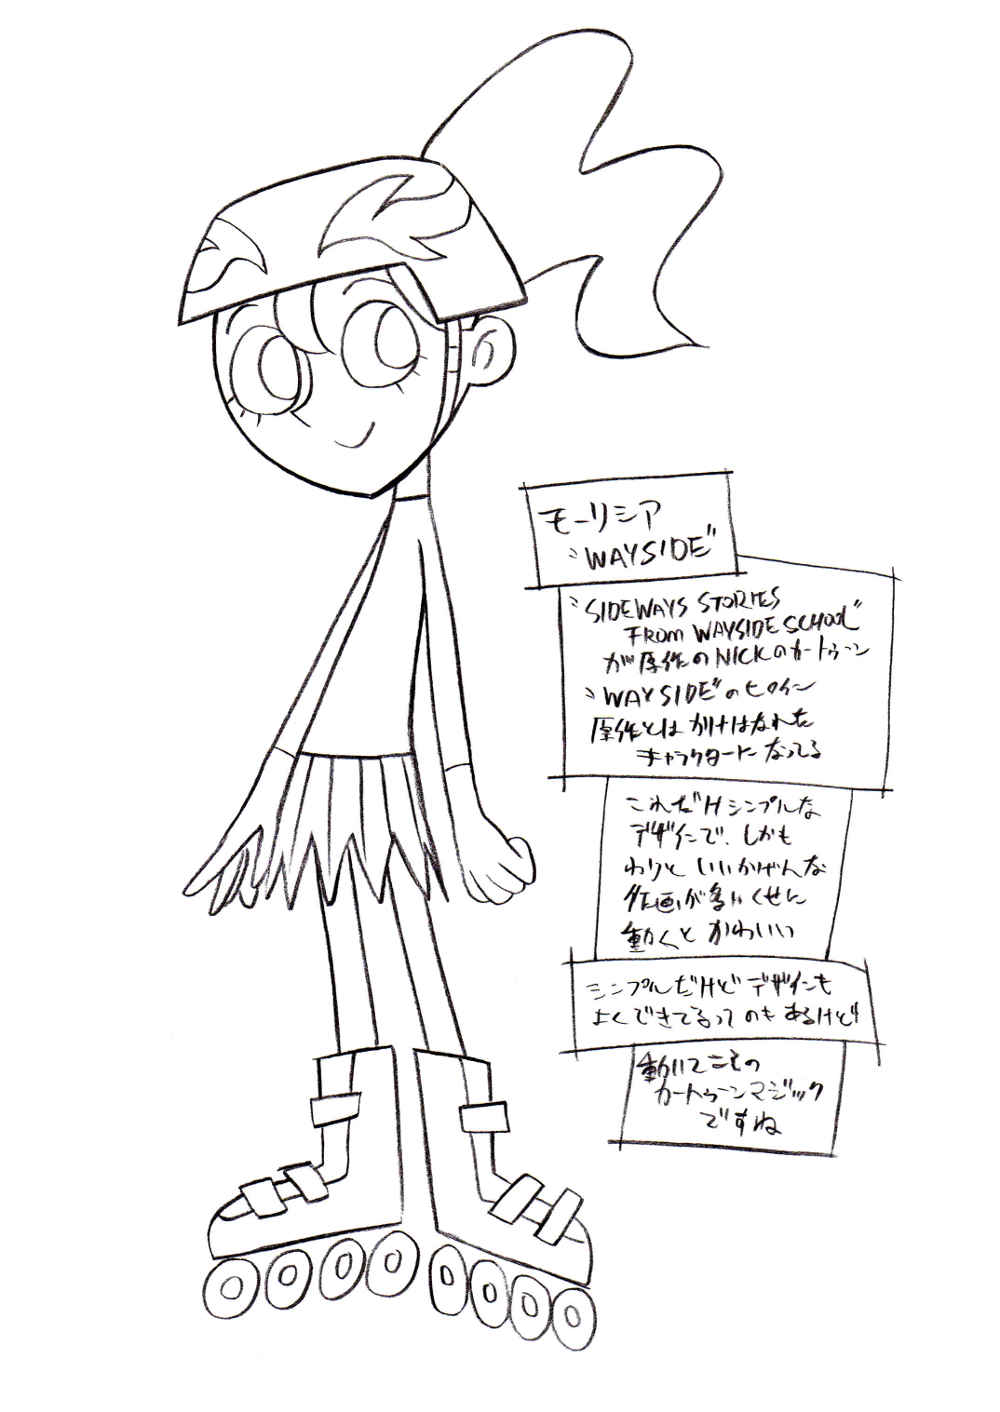 モーリシア
"WAYSIDE"
"SIDEWAYS STORIES
FROM WAYSIDE SCHOOL"
が原作のNICKのカートゥーン
"WAYSIDE"のヒロイン
原作とはかけはなれた
キャラクターになってる
これだけシンプルな
デザインで、しかも
わりといいかげんな
作画が多いくせに
動くとかわいい
シンプルだけどデザインも
よくできてるってのもあるけど
動いてこその
カートゥーンマジック
ですね